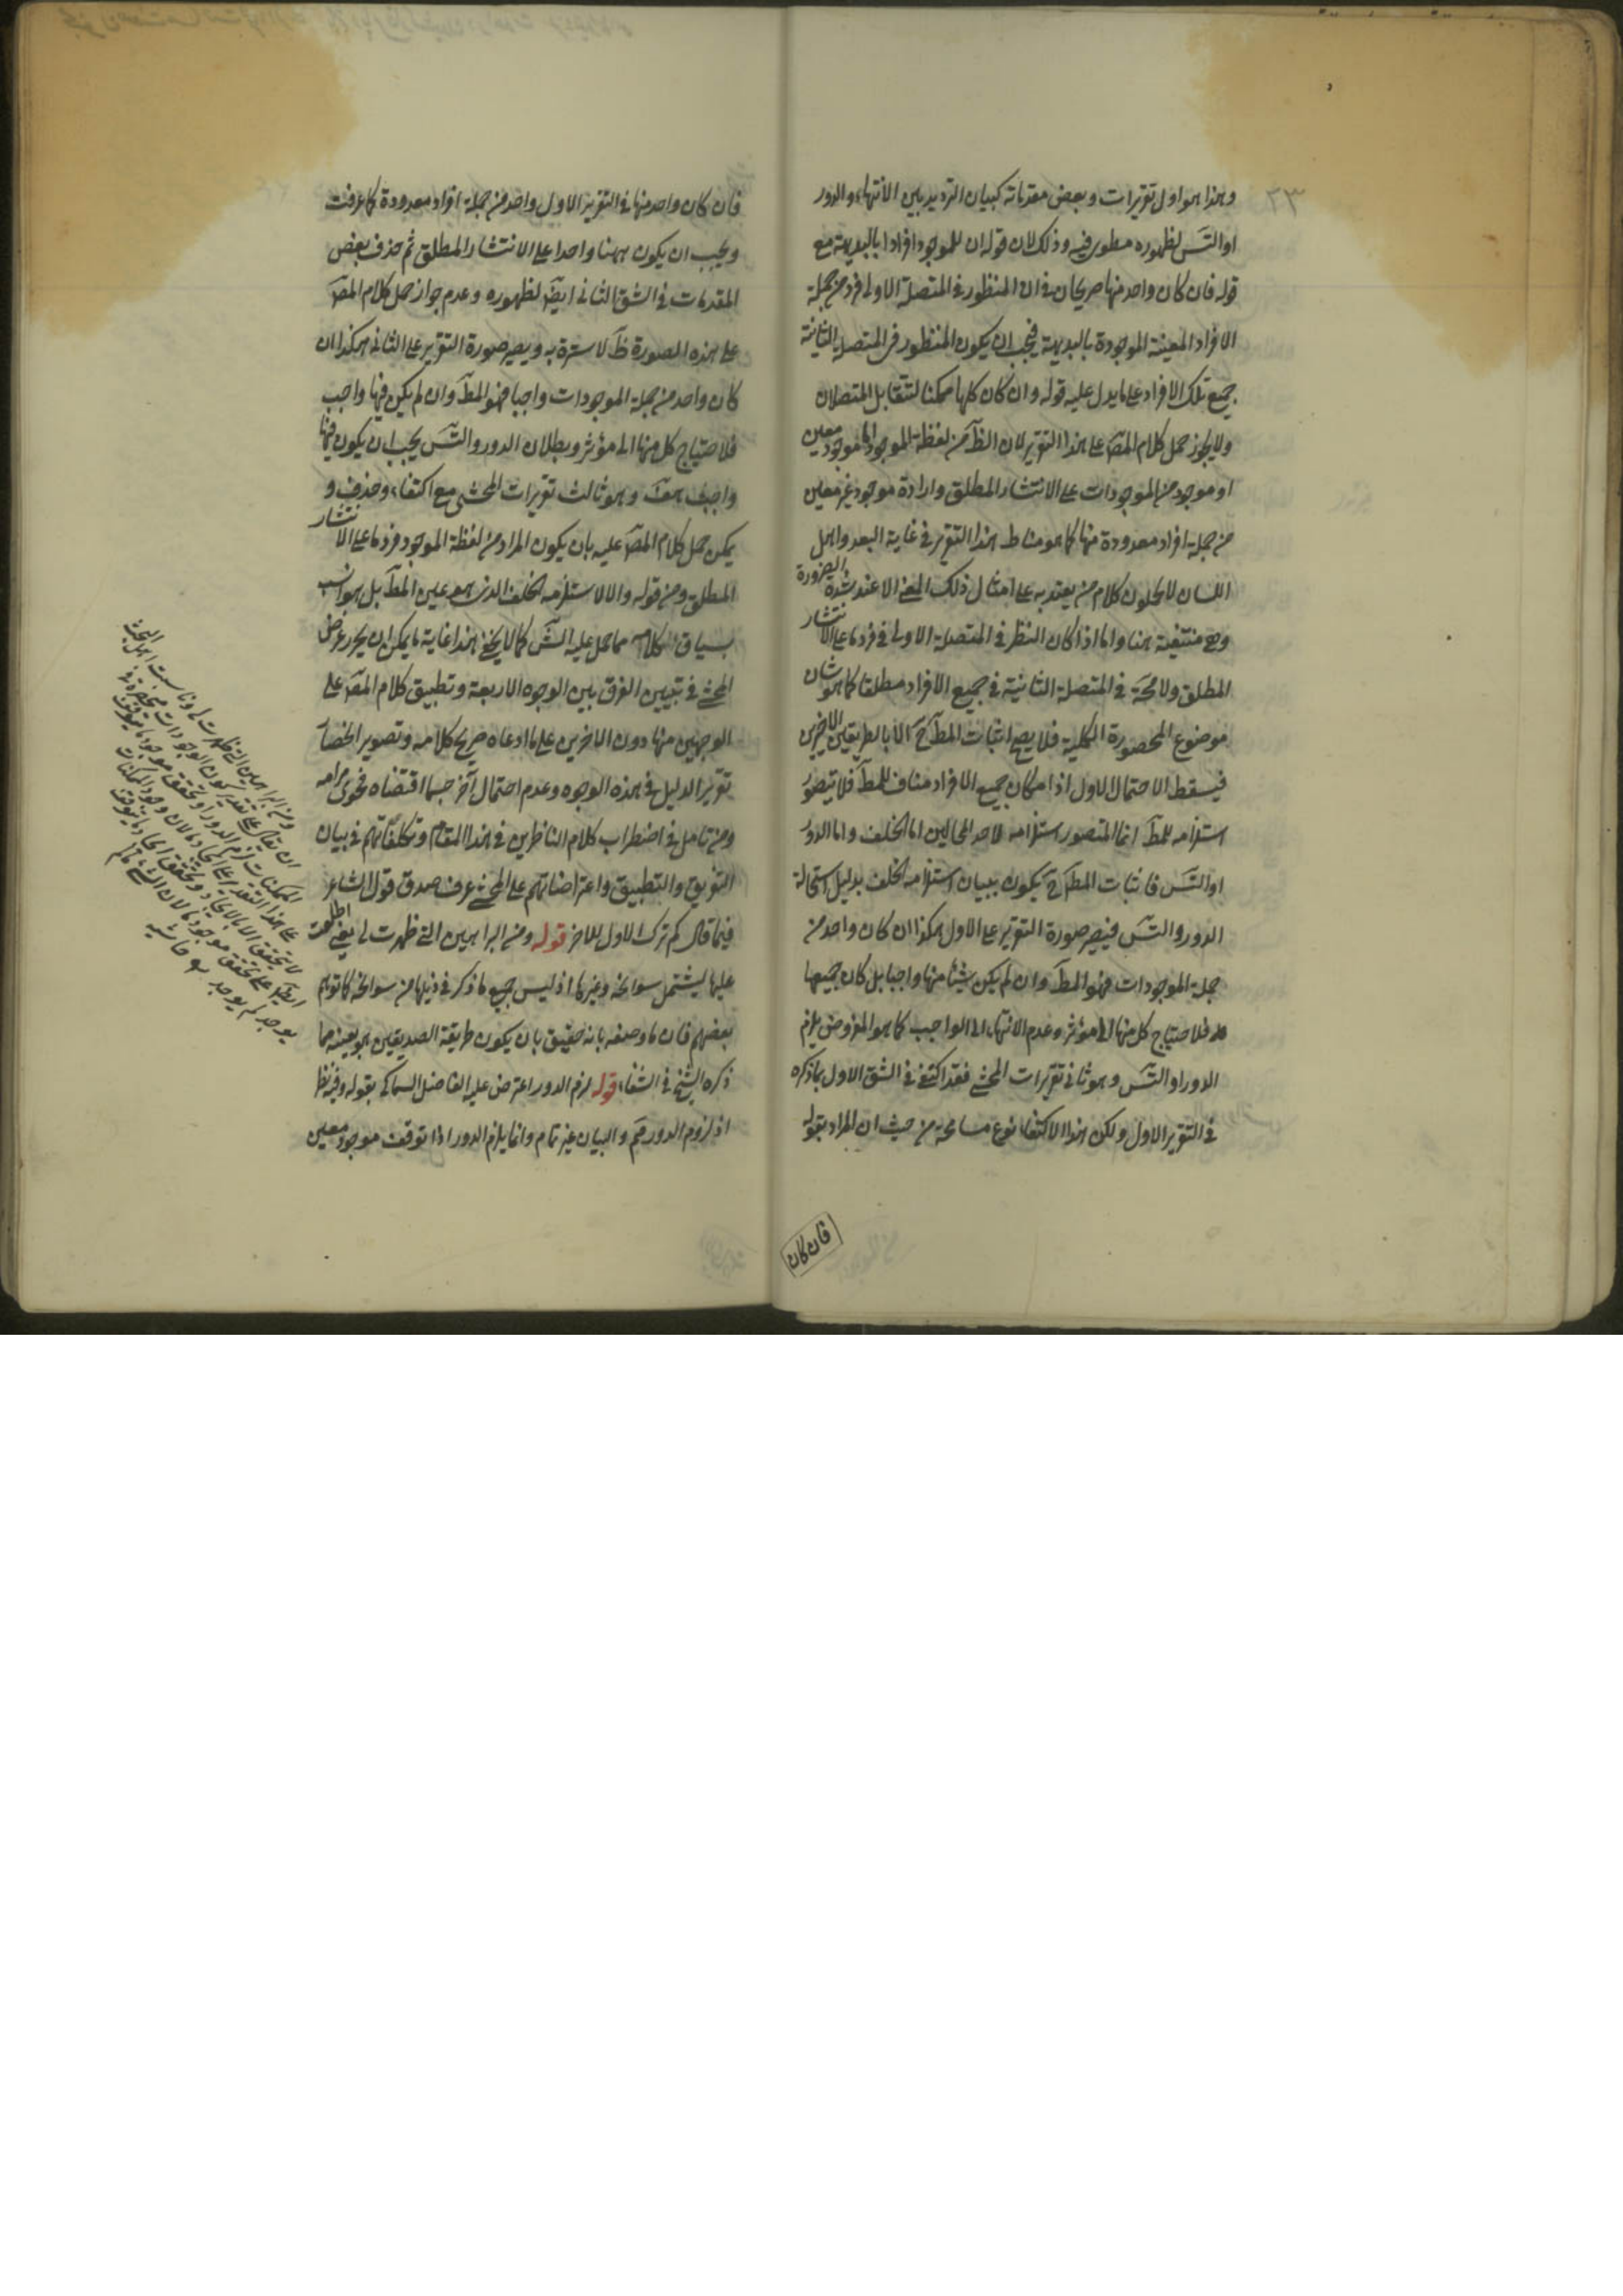 وهذا هو اول تقريرات وبعض مقدماته كبيان الترديد بين الانتهاء والدور
او التس لظهوره مطور فيه وذلك لان قوله ان للموجود افرادا بالبديهة مع
قوله فان كان واحد منها صريحان فى ان المنظور فى المتصلة الاولى فرد من جملة
الافراد المعينة الموجودة بالبديهة فيجب ان يكون المنظور فى المتصلة الثانية
جميع تلك الافراد على ما يدل عليه قوله وان كان كلها ممكنا لتتقابل المتصلان
ولا يجوز حمل كلام المص على هذا التقرير لان الظ من لفظة الموجود اما موجود معين
او موجود من الموجودات على الانتشار المطلق وارادة موجود غير معين
من جملة افراد معدودة منها كما هو مناط هذا التقرير فى غاية البعد واهل
اللسان لا يحملون كلام من يعتد به على امثال ذلك المعنى الا عند شدة الضرورة
وهى منتفية هنا واما اذا كان النظر فى المتصلة الاولى فى فرد ما على الانتشار
المطلق ولا محة فى المتصلة الثانية فى جميع الافراد مطلقا كما هو شان
موضوع المحصورة الكلية فلا يصح اثبات المط ح الا بالطريقين الاخرين
فيسقط الاحتمال الاول اذ امكان جميع الافراد مناف للمط فلا يتصور
استلزامه للمط انما المتصور استلزامه لاحد المحالين اما الخلف واما الدور
او التس فاثبات المط ح يكون ببيان استلزامه الخلف بدليل استحالة
الدور والتس فيصير صورة التقرير على الاول هكذا ان كان واحد من
جملة الموجودات فهو المط وان لم يكن شيئا منها واجبا بل كان جميعها
فلاحتياج كل منها الى مؤثر وعدم الانتهاء الى الواجب كما هو المفروض يلزم
الدور او التس وهو ثانى تقريرات المحشى فقد اكتفى فى الشق الاول بما ذكره
فى التقرير الاول ولكن هذا الاكتفاء نوع مسامحة من حيث ان المراد بقوله
فان كان
فان كان واحد منها فى التقرير الاول واحد من جملة افراد معدودة كما عرفت
ويجب ان يكون ههنا واحدا على الانتشار المطلق ثم حذف بعض
المقدمات فى الشق الثانى ايض لظهوره وعدم جواز حمل كلام المص
على هذه الصورة ظ لا سترة به ويصير صورة التقرير على الثانى هكذا ان
كان واحد من جملة الموجودات واجبا فهو المط وان لم يكن فيها واجب
فلاحتياج كل منها الى مؤثر وبطلان الدور والتس يجب ان يكون فيها
واجب هف وهو ثالث تقريرات المحشى مع اكتفاء وحذف و
يمكن حمل كلام المص عليه بان يكون المراد من لفظة الموجود فرد ما على الانتشار
المطلق ومن قوله والا لاستلزمه الخلف الذى هو عين المط بل هو انسب
بسياق كلامه مما حمل عليه الش كما لا يخفى هذا غاية ما يمكن ان يحرر عرض
المحشى فى تبيين الفرق بين الوجوه الاربعة وتطبيق كلام المص على
الوجهين منها دون الاخرين على ما ادعاه صريح كلامه وتصوير انحصار
تقرير الدليل فى هذه الوجوه وعدم احتمال آخر حسبما اقتضاه فحوى مرامه
ومن تامل فى اضطراب كلام الناظرين فى هذا المقام وتكلفاتهم فى بيان
التفريق والتطبيق واعتراضاتهم على المحشى عرف صدق قول الشاعر
فيما قال كم ترك الاول للاخر قوله ومن البراهين التى ظهرت لى يعنى اطلعت
عليها ليشتمل سوانحه وغيرها اذ ليس جميع ما ذكر فى ذيلها من سوانحه كما توهم
بعضهم فان ما وصفه بانه حقيق بان يكون طريقة الصديقين هو بعينه مما
ذكره الشيخ فى الشفاء قوله لزم الدور اعترض عليه الفاضل السماكى بقوله وفيه نظر
اذ لزوم الدور مم والبيان غير تمام وانما يلزم الدور اذا توقف موجود معين
ومن البراهين التى ظهرت لى
ان يقال على تقدير كون الموجودات منحصرة فى
الممكنات لزم الدور اذ تحقق موجود ما يتوقف
على هذا التقدير على ايجاد ما لان وجود الممكنات
لا يتحقق الا بالايجاد وتحقق ايجاد ما يتوقف
ايض على تحقق موجود ما لان الشئ ما لم
يوجد لم يوجد حاشيه